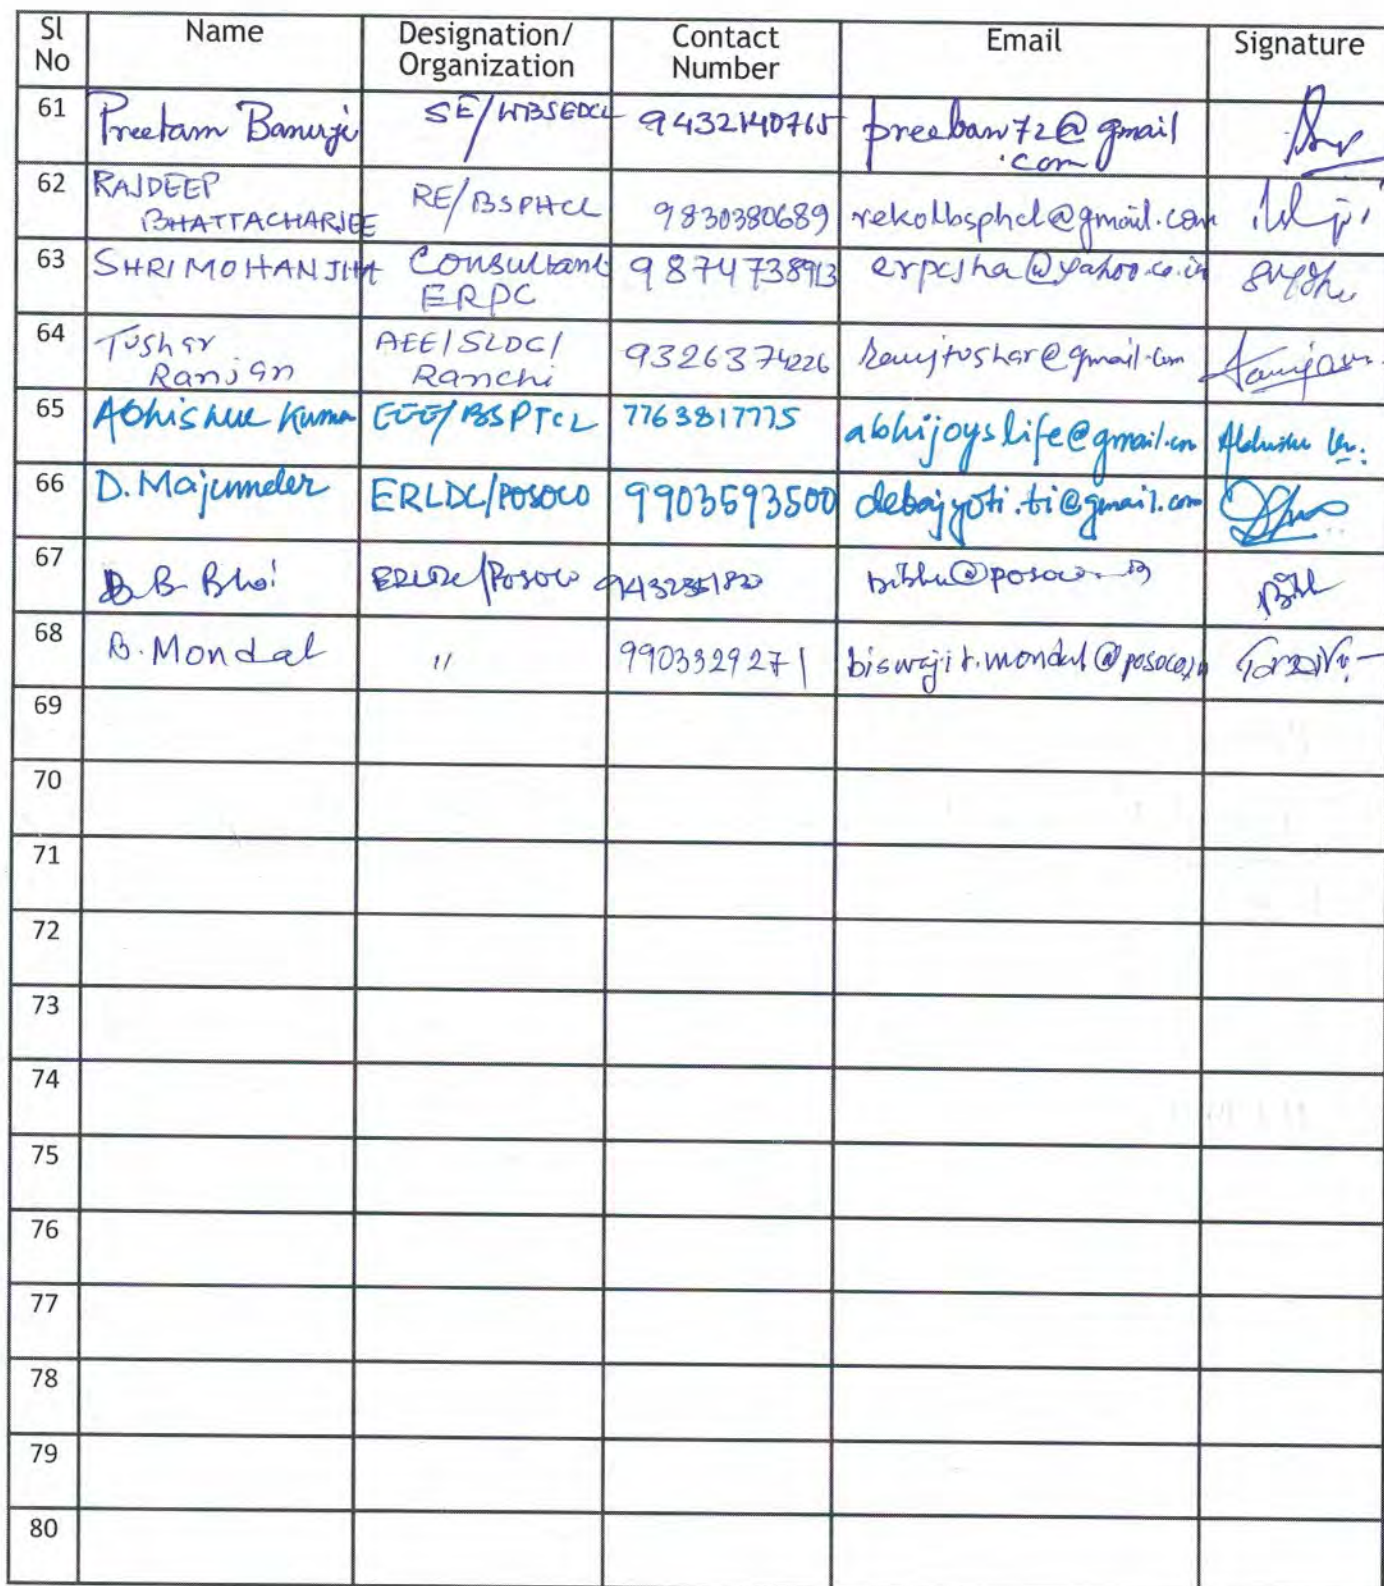 Sl No Name Designation/ Organization Contact Number Email Signature
61 Preetam Banerji SE/WBSEDCL 9432140765 preeban72@gmail
.com
62 RAJDEEP BHATTACHARJEE RE/BSPHCL 9830380689 rekolbsphcl@gmail.com
63 SHRI MOHAN JHA Consultant ERPC 9874738913 erpcjha@yahoo.co.in
64 Tushar Ranjan AEE/SLDC/ Ranchi 9326374226 ranjtushar@gmail.com
65 Abhishek Kumar EEE/BSPTCL 7763817775 abhijoyslife@gmail.com
66 D. Majumder ERLDC/POSOCO 9903593500 debajyoti.ti@gmail.com
67 B B Bhoi ERLDC/Posoco
68 B. Mondal " 9903329271 biswajit.mondal@posoco.in
69
70
71
72
73
74
75
76
77
78
79
80